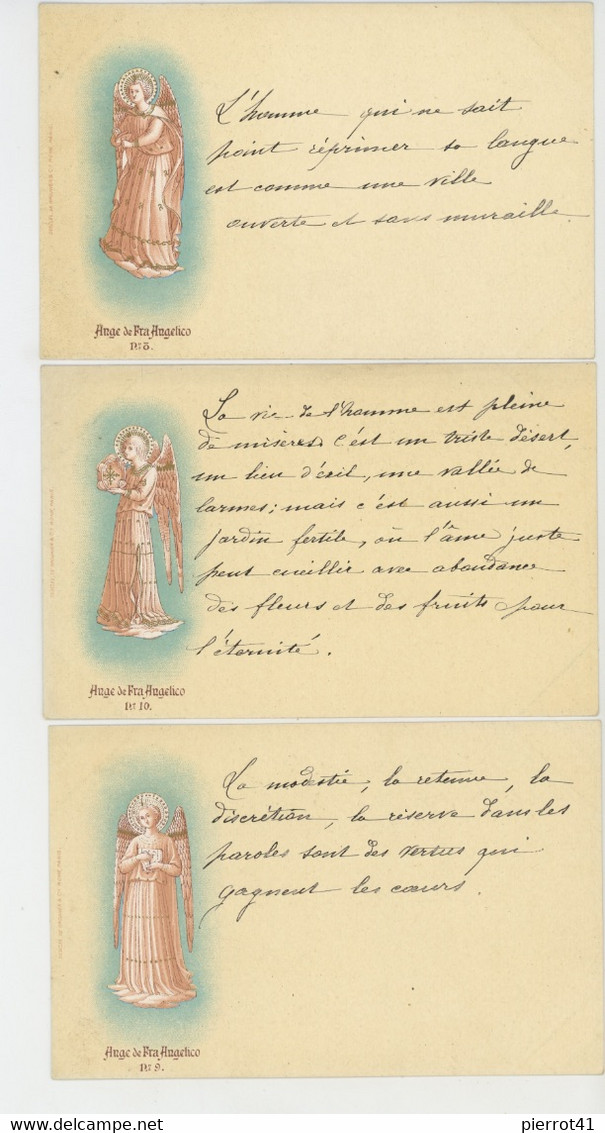 L'homme qui ne sait
point réprimer sa langue
est comme une ville
ouverte et sans muraille.
Ange de Fra Angelico
Nº 3.
La vie de l'homme est pleine
de misères, c'est un triste désert,
un lieu d'exil, une vallée de
larmes; mais c'est aussi un
jardin fertile, où l'âme juste
peut cueillir avec abondance
des fleurs et des fruits pour
l'éternité.
Ange de Fra Angelico
Nº 10.
La modestie, la retenue, la
discrétion, la réserve dans les
paroles sont des vertus qui
gagnent les cœurs.
Ange de Fra Angelico
Nº 9.
delcampe.net
pierrot41